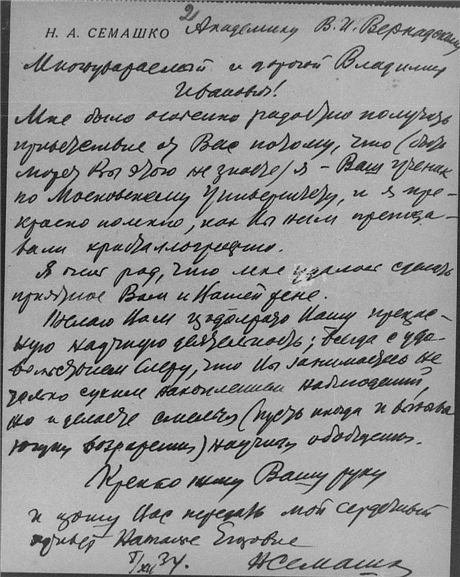 Н. А. СЕМАШКО Академику В. И. Вернадскому
Многоуважаемый и дорогой Владимир
Иванович!
Мне было особенно радостно получить
приветствие от Вас потому, что (быть
может Вы этого не знаете) я – Ваш ученик
по Московскому Университету, и я пре-
красно помню, как Вы нам препода-
вали кристаллографию.
Я очень рад, что мне удалось сделать
приятное Вам и Вашей жене.
Желаю Вам продолжать Вашу прекрас-
ную научную деятельность; всегда с удо-
вольствием слежу, что Вы занимаетесь не
только сухим накоплением наблюдений,
но и делаете смелые (пусть иногда и вызыва-
ющие возражения) научные обобщения.
Крепко жму Вашу руку
и прошу Вас передать мой сердечный
привет Наталье Егоровне
XII 34. НСемашко